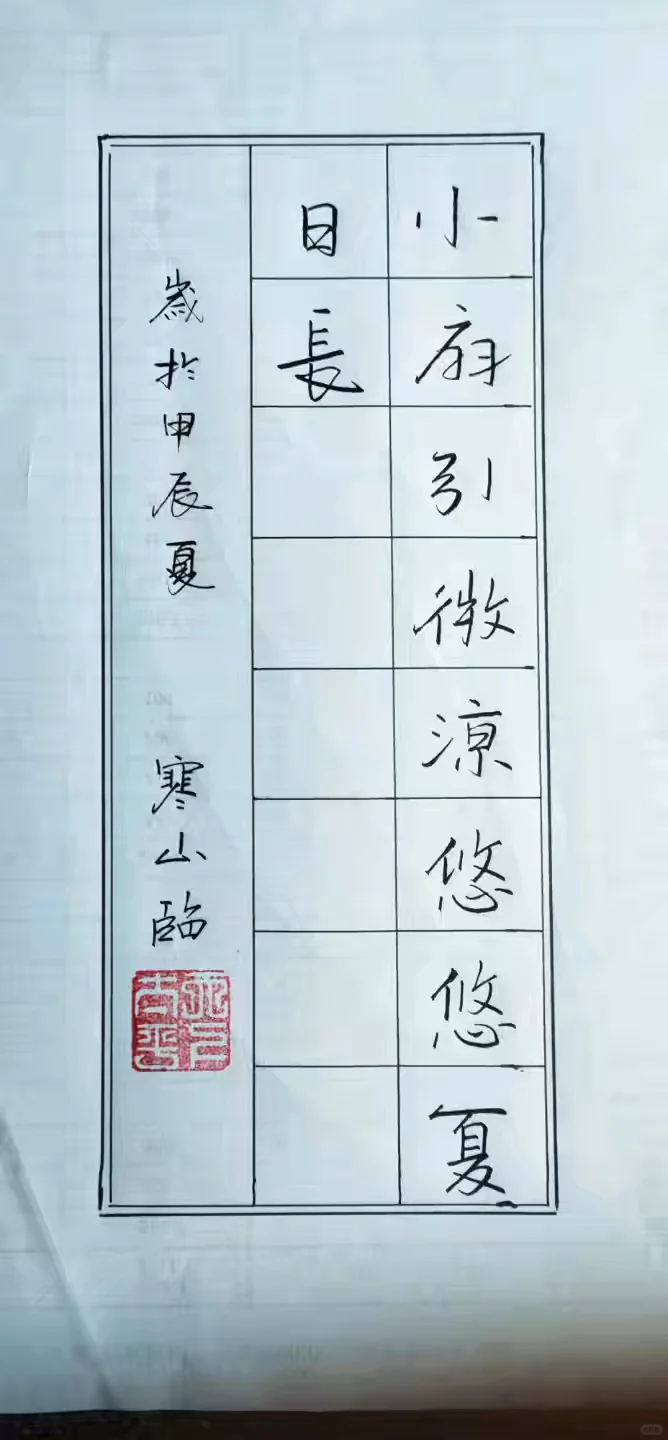 小扇引微涼悠悠夏
日長
歲於甲辰夏 寒山臨